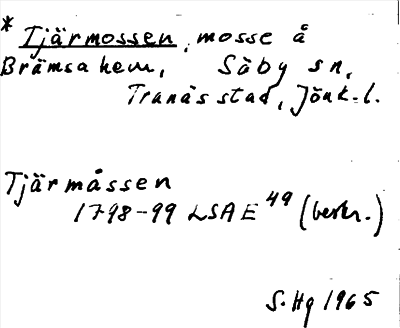 * Tjärmossen, mosse å
Brämsahem, Säby sn,
Tranås stad, Jönk. l.
Tjärmåssen
1798-99 LSA E 49 (beskr.)
S. Hg 1965